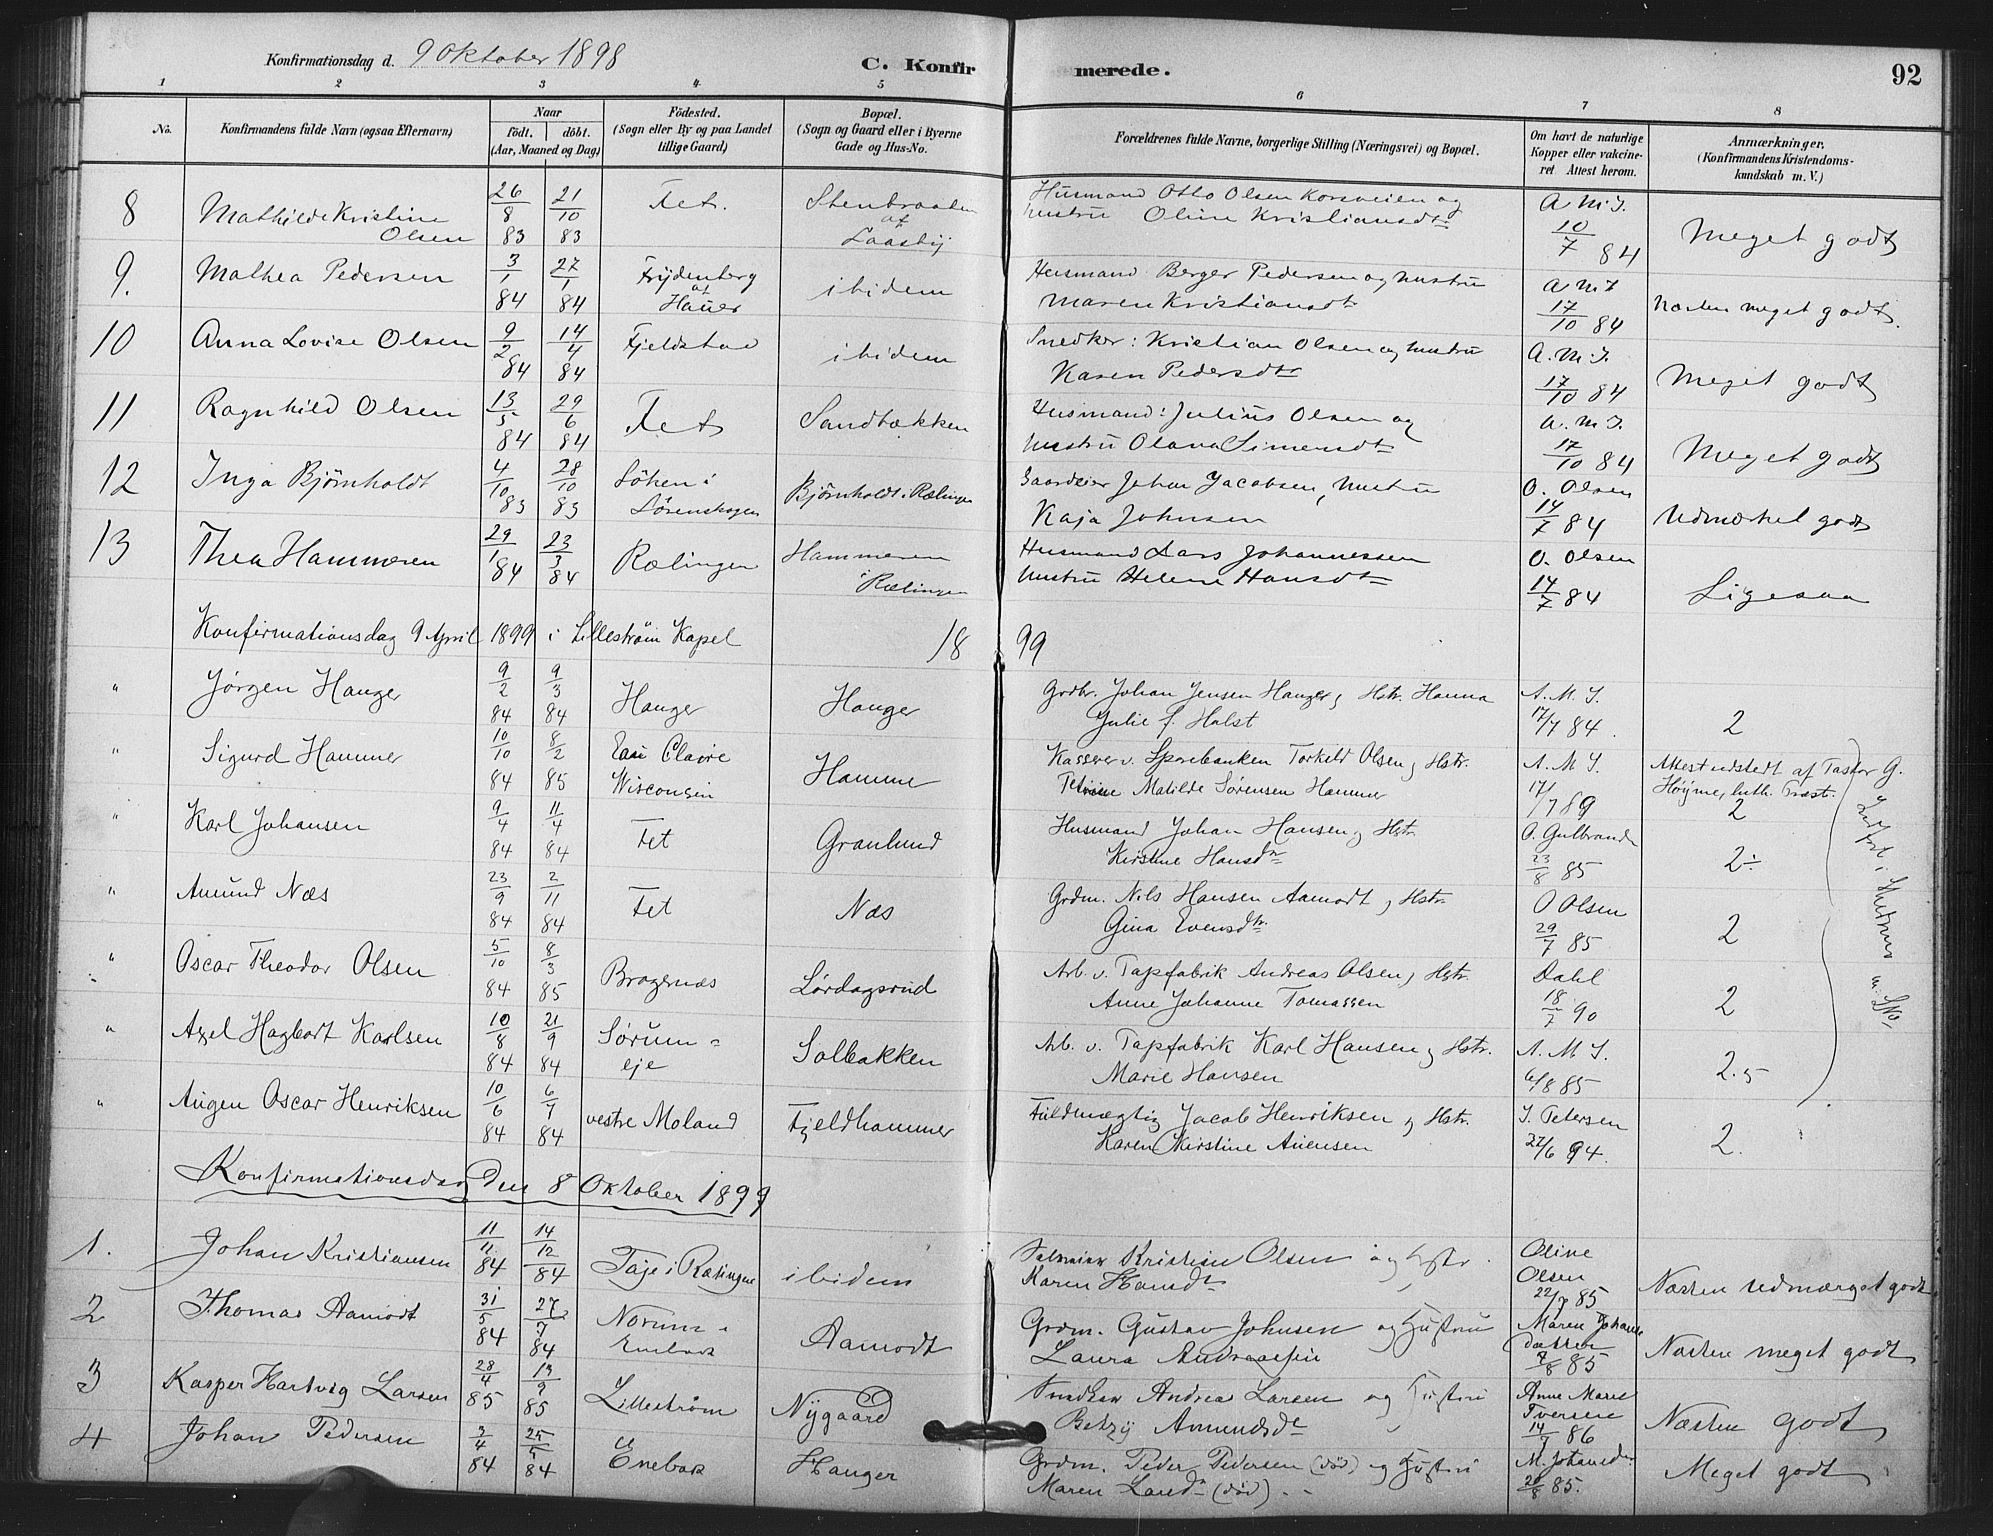 Konfirmationsdag d. 9 Oktober 1898
C. Konfirmerede.
92
1 2 3 4 5 6 7 8
No.
Konfirmandens fulde Navn (ogsaa Efternavn)
Naar
født. døbt.
(Aar, Maaned og Dag)
Födested.
(Sogn eller By og paa Landet
tillige Gaard)
Bopæl.
(Sogn og Gaard eller i Byerne
Gade og Hus-No.
Forældrenes fulde Navne, borgerlige Stilling (Næringsvei) og Bopæl.
Om havt de naturlige
Kopper eller vakcine-
ret Attest herom.
Anmærkninger.
(Konfirmandens Kristendoms-
kundskab m. V.)
8 Mathilde Kristine Olsen 26/8 83 21/10 83 Fet. Stenbraaten af Laasby Husmand Otto Olsen Korsveien og
Hustru Oline Kristiansdtr A M J. 10/7 84 Meget godt
9. Mathea Pedersen 3/1 84 27/1 84 Frydenberg af Hauer ibidem Husmand Berger Pedersen og Hustru
Maren Kristiansdtr A M J 17/10 84 Næsten meget godt.
10 Anna Lovise Olsen 9/2 84 14/4 84 Fjeldstad ibidem Snedker: Kristian Olsen og Hustru
Karen Pedersdtr A. M. J. 17/10 84 Meget godt
11 Ragnhild Olsen 13/5 84 29/6 84 Fet Sandbækken Husmand: Julius Olsen og
Hustru Olava Simensdtr A. M J. 17/10 84 Meget godt
12 Inga Bjørnholdt 4/10 83 28/10 83 i Lørenskogen Bjørnholdt i Rælingen Gaardeier Johan Jacobsen, Hustru
Kaja Johnsen O. Olsen 14/7 84 Udmærket godt
13 Thea Hammeren 29/1 84 23/3 84 Rælingen Hammeren i Rælingen Husmand Lars Johannessen
Hustru Helene Hansdtr O. Olsen 14/7 84 Ligesaa
Konfirmationsdag 9 April 1899 i Lillestrøm Kapel 18 99
" Jørgen Hauger 9/2 84 9/3 84 Hauger Hauger Grdbr. Johan Jensen Hauger og Hstr. Hanna
Julie f. Holst A. M. J. 17/7 84. 2
" Sigurd Hammer 10/10 84 8/2 85 Eau Claire Wisconsin Hamme Kasserer v. Sparebanken Torkeld Olsen og Hstr.
Petrine Matilde Sørensen Hammer A. M J. 17/7 89 Attest udstedt af Pastor G.
Høyme, luth. Præst. 2
" Karl Johansen 9/4 84 11/4 84 Fet Granlund Husmand Johan Hansen og Hstr.
Kirstine Hansdtr O. Gulbrands 23/8 85 2÷
" Amund Næs 23/9 84 2/11 84 Fet Næs Grdm. Nils Hansen Aamodt og Hstr.
Gina Evensdtr. O Olsen 29/7 85 2
" Oscar Theodor Olsen 5/10 84 8/3 85 Bragernæs Lørdagsrud Arb. v. Tapfabrik Andreas Olsen og Hstr.
Anne Johanne Tomassen Dahl 18/7 90 2
" Axel Hagbart Karlsen 10/8 84 21/9 84 Sørum-eje Solbakken Arb. v. Tapfabrik Karl Hansen og Hstr.
Marie Hansen A. M J. 6/8 85 2.5
" Augen Oscar Henriksen 10/6 84 6/7 84 vestre Moland Fjeldhammer Fuldmægtig Jacob Henriksen og Hstr.
Karen Kirstine Auensen J. Petersen 22/6 94. 2.
Konfirmationsdag Den 8 Oktober 1899
1. Johan Kristiansen 11/11 84 14/12 84 Taje i Rælingen ibidem Kristian Olsen og Hstr.
Karen Hansdtr Oline Olsen 22/7 85 Næsten udmærget godt
2 Thomas Aamodt 31/5 84 27/7 84 Enebak Aamodt Grdm. Gustav Johnsen og Hustru
Laura Andreasen Maren Johansdatter 8/8 85 Næsten meget godt
3 Kasper Hartvig Larsen 28/4 85 13/9 85 Lillestrøm Nygaard Snedker Andrea Larsen og Hustru
Betzy Amundsdtr Anne Marie Iversen 14/7 86 Næsten godt
4 Johan Pedersen 3/4 84 25/5 84 Enebak Hauger Grdm. Peder Pedersen (død) og Hustru
Maren Larsdtr (død) M. Johansdtr 20/8 85. Meget godt